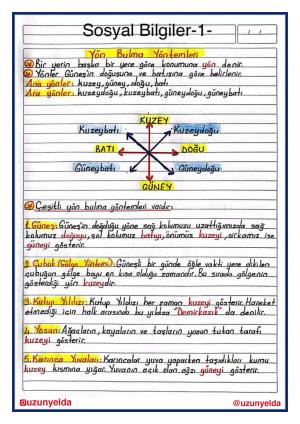 Sosyal Bilgiler-1-
/ /
Yön Bulma Yöntemleri
Bir yerin başka bir yere göre konumuna yön denir.
Yönler Güneş'in doğuşuna ve batışına göre belirlenir.
Ana yönler: kuzey, güney, doğu, batı
Ara yönler: kuzeydoğu, kuzeybatı, güneydoğu, güneybatı
KUZEY
Kuzeybatı Kuzeydoğu
BATI DOĞU
Güneybatı Güneydoğu
GÜNEY
Çeşitli yön bulma yöntemleri vardır;
1. Güneş: Güneşin doğduğu yöne sağ kolumuzu uzattığımızda sağ
kolumuz doğuyu, sol kolumuz batıyı, önümüz kuzeyi, arkamız ise
güneyi gösterir.
2. Çubuk (Gölge Yöntemi): Güneşli bir günde öğle vakti yere dikilen
çubuğun gölge boyu en kısa olduğu zamandır. Bu sırada gölgenin
gösterdiği yön kuzeydir.
3. Kutup Yıldızı: Kutup Yıldızı her zaman kuzeyi gösterir. Hareket
etmediği için halk arasında bu yıldıza "Demirkazık" da denilir.
4. Yosun: Ağaçların, kayaların ve taşların yosun tutan tarafı
kuzeyi gösterir.
5. Karınca Yuvaları: Karıncalar yuva yaparken taşıdıkları kumu
kuzey kısmına yığar. Yuvanın açık olan ağzı güneyi gösterir.
@uzunyelda @uzunyelda